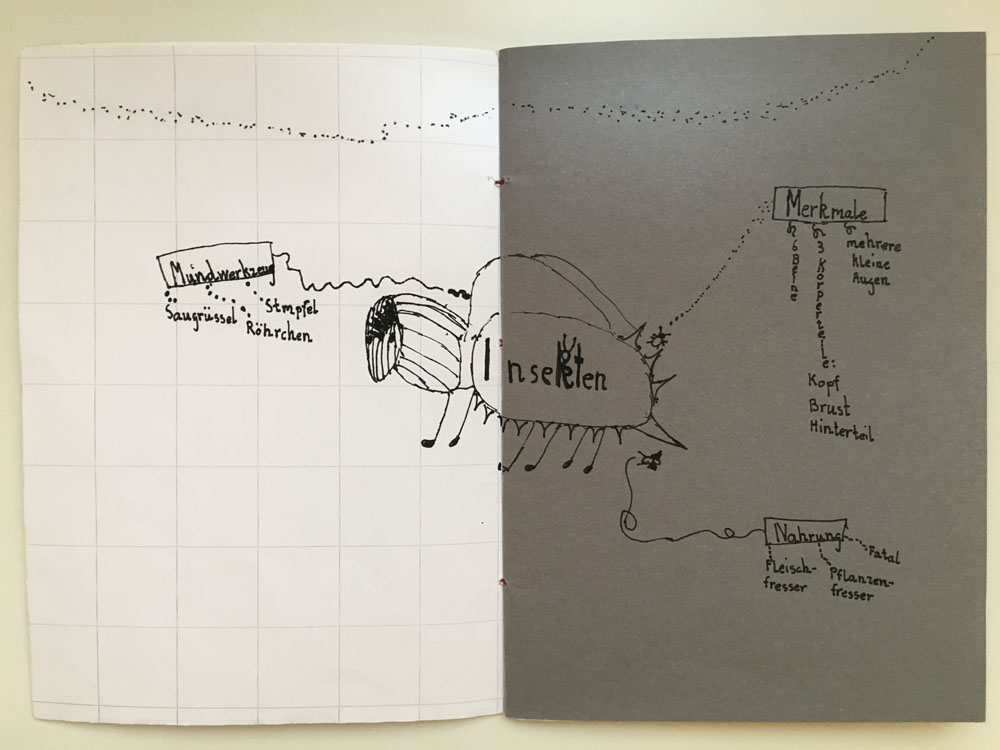 Mundwerkzeug
Saugrüssel
Röhrchen
Stmpfel
Insekten
Merkmale
6 Beine
3 Körperteile:
Kopf
Brust
Hinterteil
mehrere
kleine
Augen
Nahrung
Fleisch-
fresser
Pflanzen-
fresser
Fatal